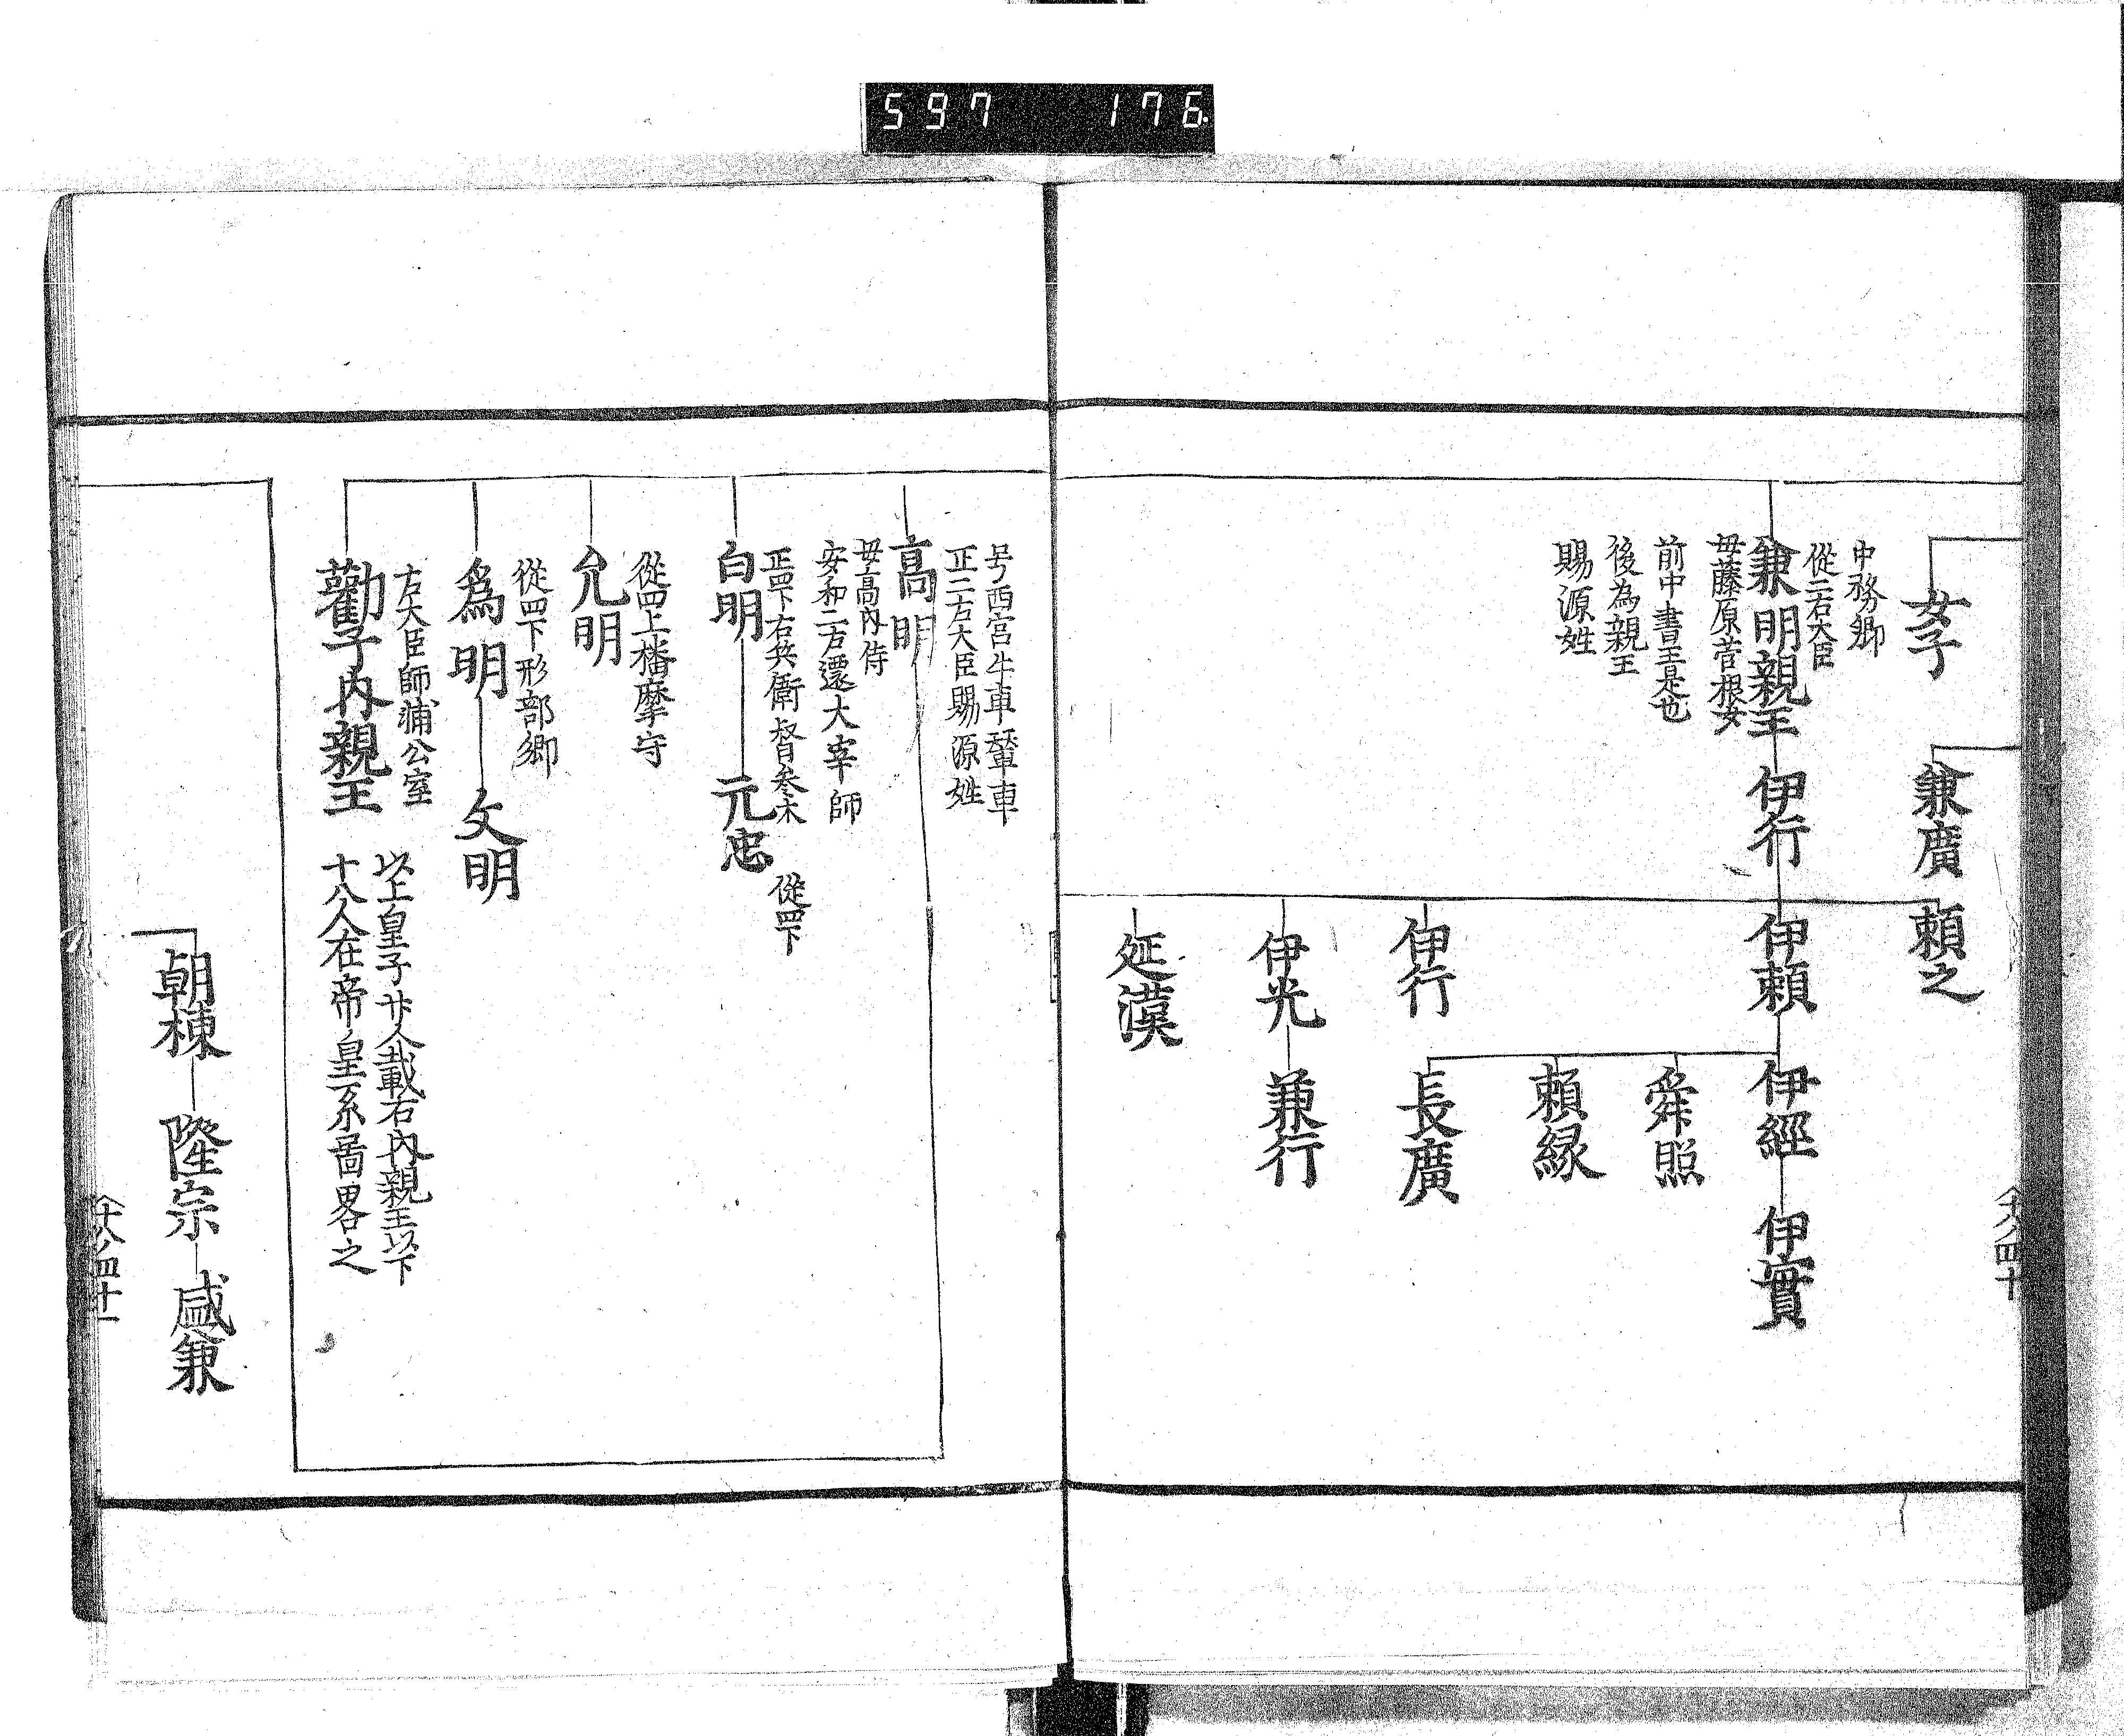 597 176
女子
兼廣
頼之
中務卿
從二右大臣
兼明親王
伊行
伊頼
伊經
伊實
母藤原菅根女
前中書王是也
後為親王
賜源姓
舜照
頼縁
長廣
伊行
伊光
兼行
延漢
号西宮牛車輦車
正二左大臣賜源姓
高明
母高内侍
安和二左遷大宰師
正四下右兵衛督参木
自明
元忠
從四下
從四上播摩守
允明
從四下形部卿
爲明
文明
左大臣師浦公室
勸子内親王
以上皇子廿人載右内親王以下
十八人在帝皇系啚畧之
朝棟
陸宗
盛兼